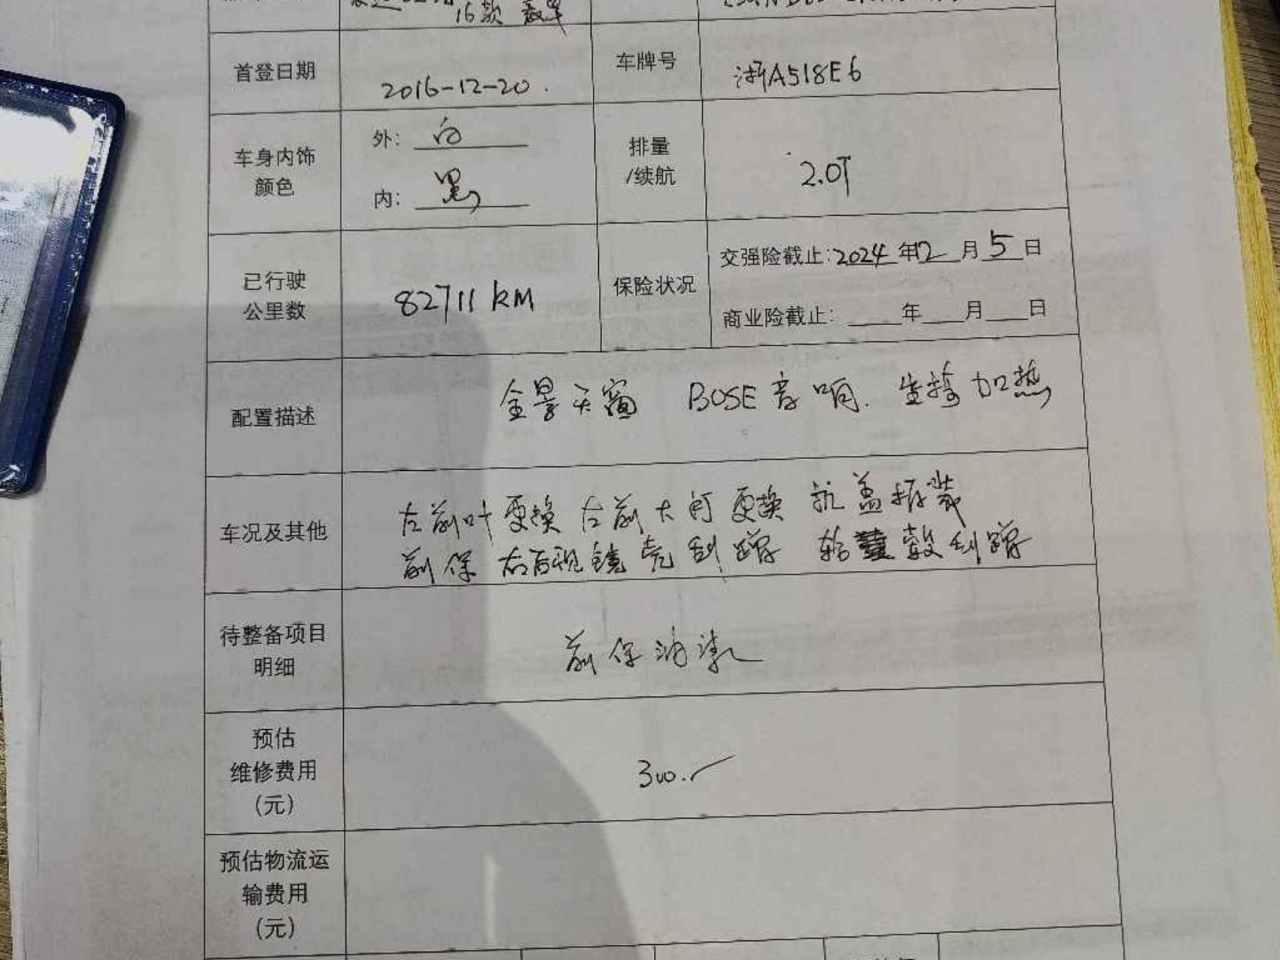 16款
首登日期 2016-12-20. 车牌号 浙A518E6
车身内饰颜色 外: 白 排量/续航 2.0T
内: 黑
已行驶公里数 82711 KM 保险状况 交强险截止:2024年12月5日
商业险截止: 年 月 日
配置描述 全景天窗 BOSE音响. 坐椅加热
车况及其他 左前叶更换 左前大灯更换 机盖拆装
前保 右后视镜壳刮蹭 轮毂刮蹭
待整备项目明细 前保油漆
预估维修费用(元) 300.
预估物流运输费用(元)